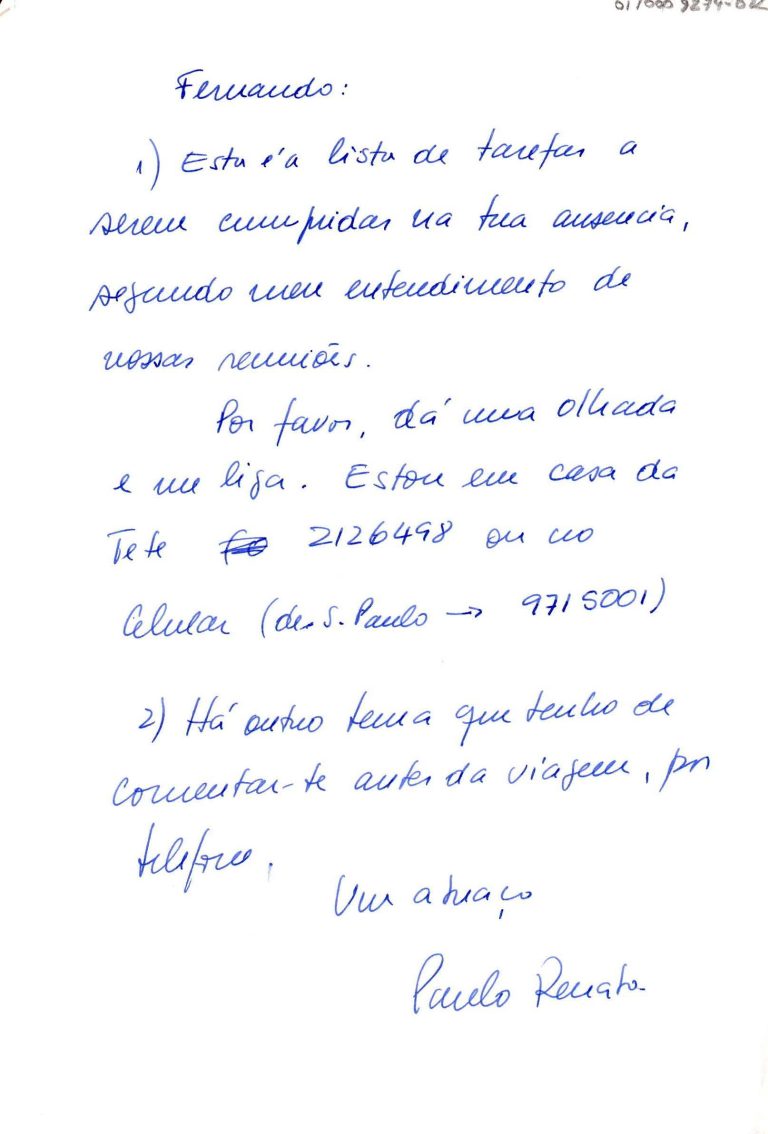 Fernando:
1) Esta é a lista de tarefas a
serem cumpridas na tua ausencia,
segundo meu entendimento de
nossas reuniões.
Por favor, dá uma olhada
e me liga. Estou em casa da
Tete 2126498 ou no
Celular (de S. Paulo → 9715001)
2) Há outro tema que tenho de
comentar-te antes da viagem, por
telefone.
Um abraço
Paulo Renato.